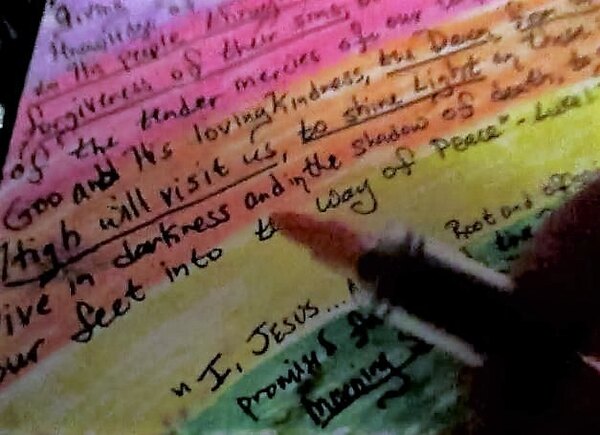 giving
knowledge of
to His people through
forgiveness of their sins,
of the tender mercies of our
God and His lovingkindness, the Dawn from
High will visit us, to shine Light on those
live in darkness and in the shadow of death, to
our feet into the way of Peace" - Luke 1
Root and offs
the
"I, JESUS...
promised
Morning